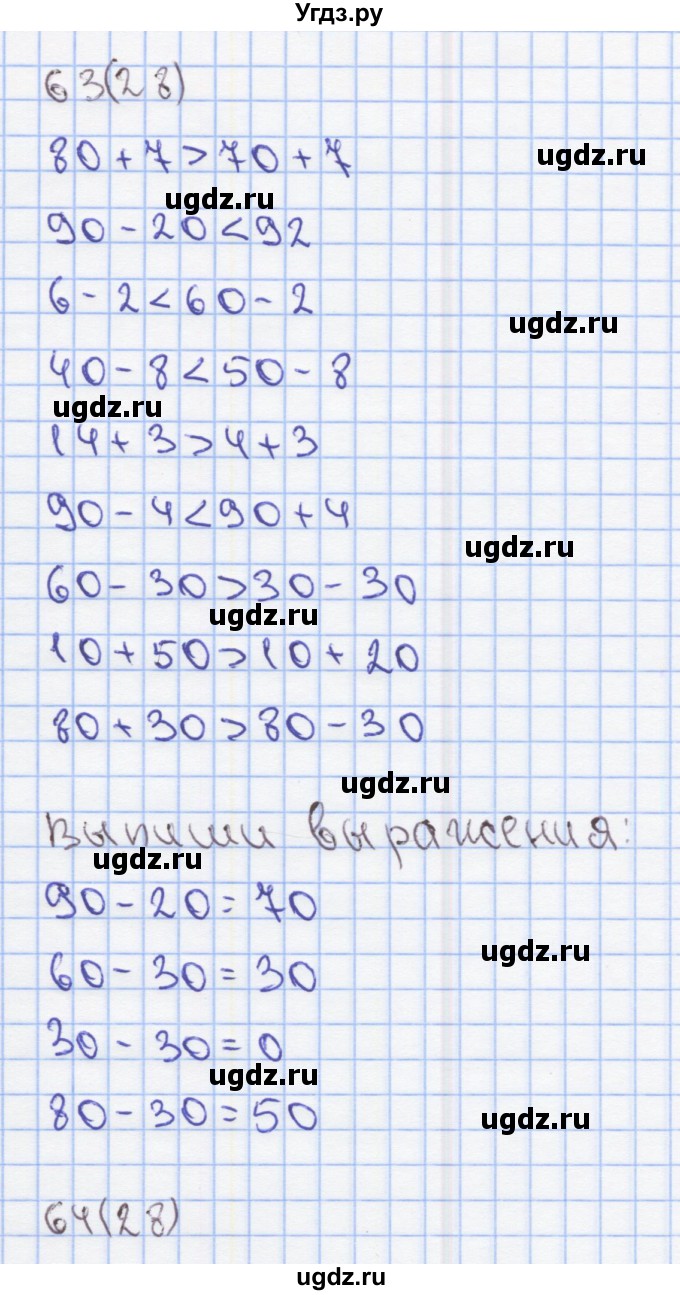 Угдз.ру
63(28)
80+7>70+7
ugdz.ru
ugdz.ru
90-20<92
6-2<60-2
ugdz.ru
40-8<50-8
ugdz.ru
14+3>4+3
90-4<90+4
ugdz.ru
60-30>30-30
ugdz.ru
10+50>10+20
80+30>80-30
ugdz.ru
Выпиши выражения:
ugdz.ru
90-20=70
ugdz.ru
60-30=30
30-30=0
ugdz.ru
80-30=50
ugdz.ru
64(28)
ugdz.ru